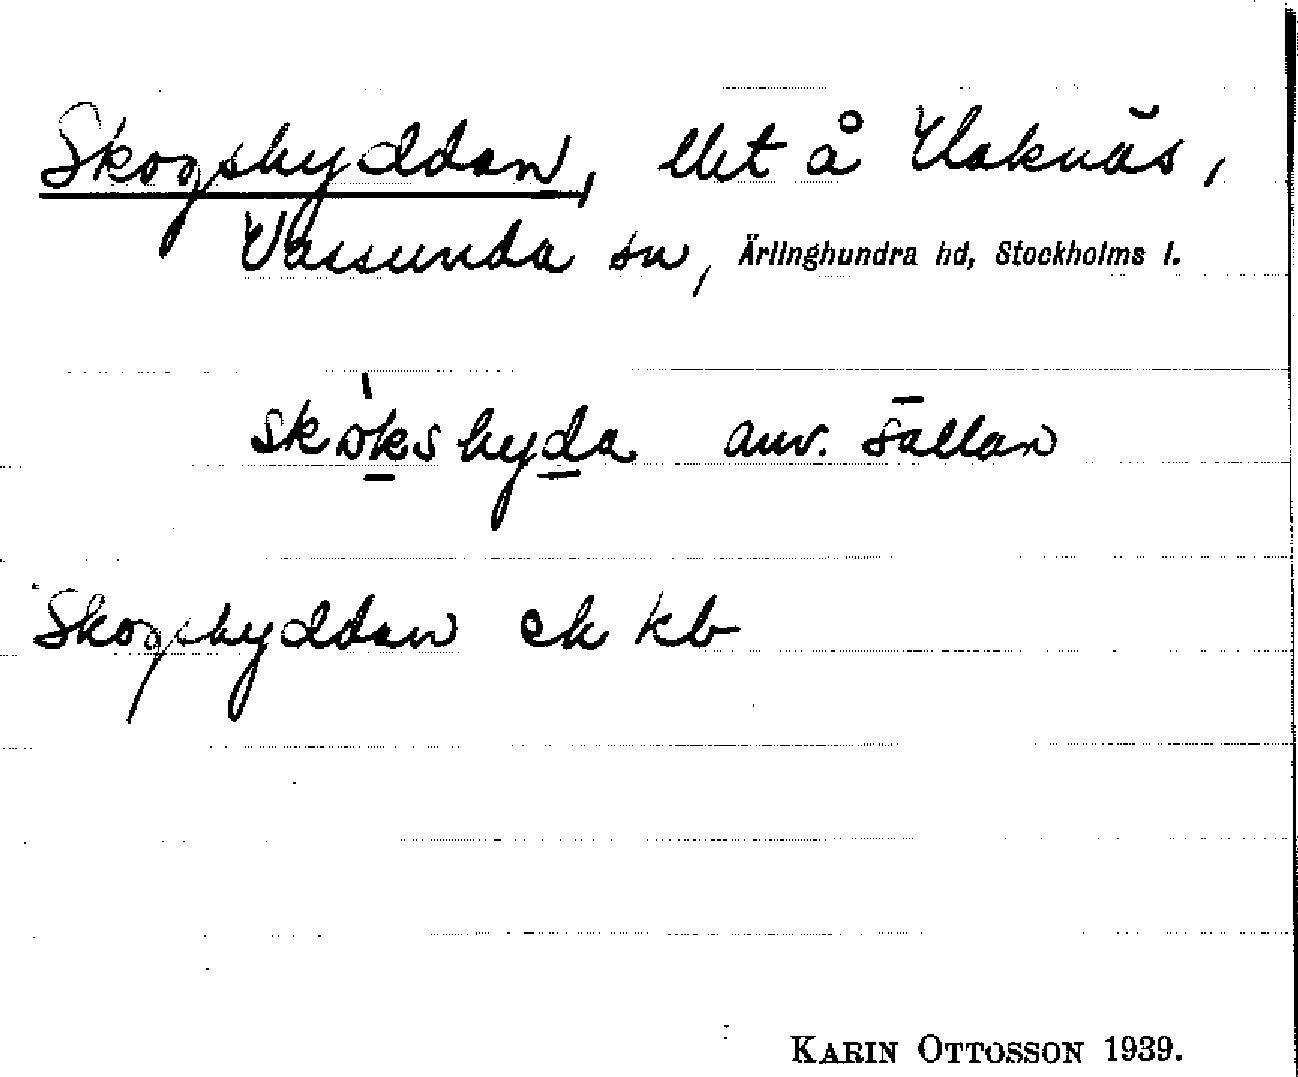 Skogshyddan, llbt å Vaknäs,
Vassunda sn, Ärlinghundra hd, Stockholms l.
skòkshyda anv. sällan
Skogshyddan ek kb
KARIN OTTOSSON 1939.